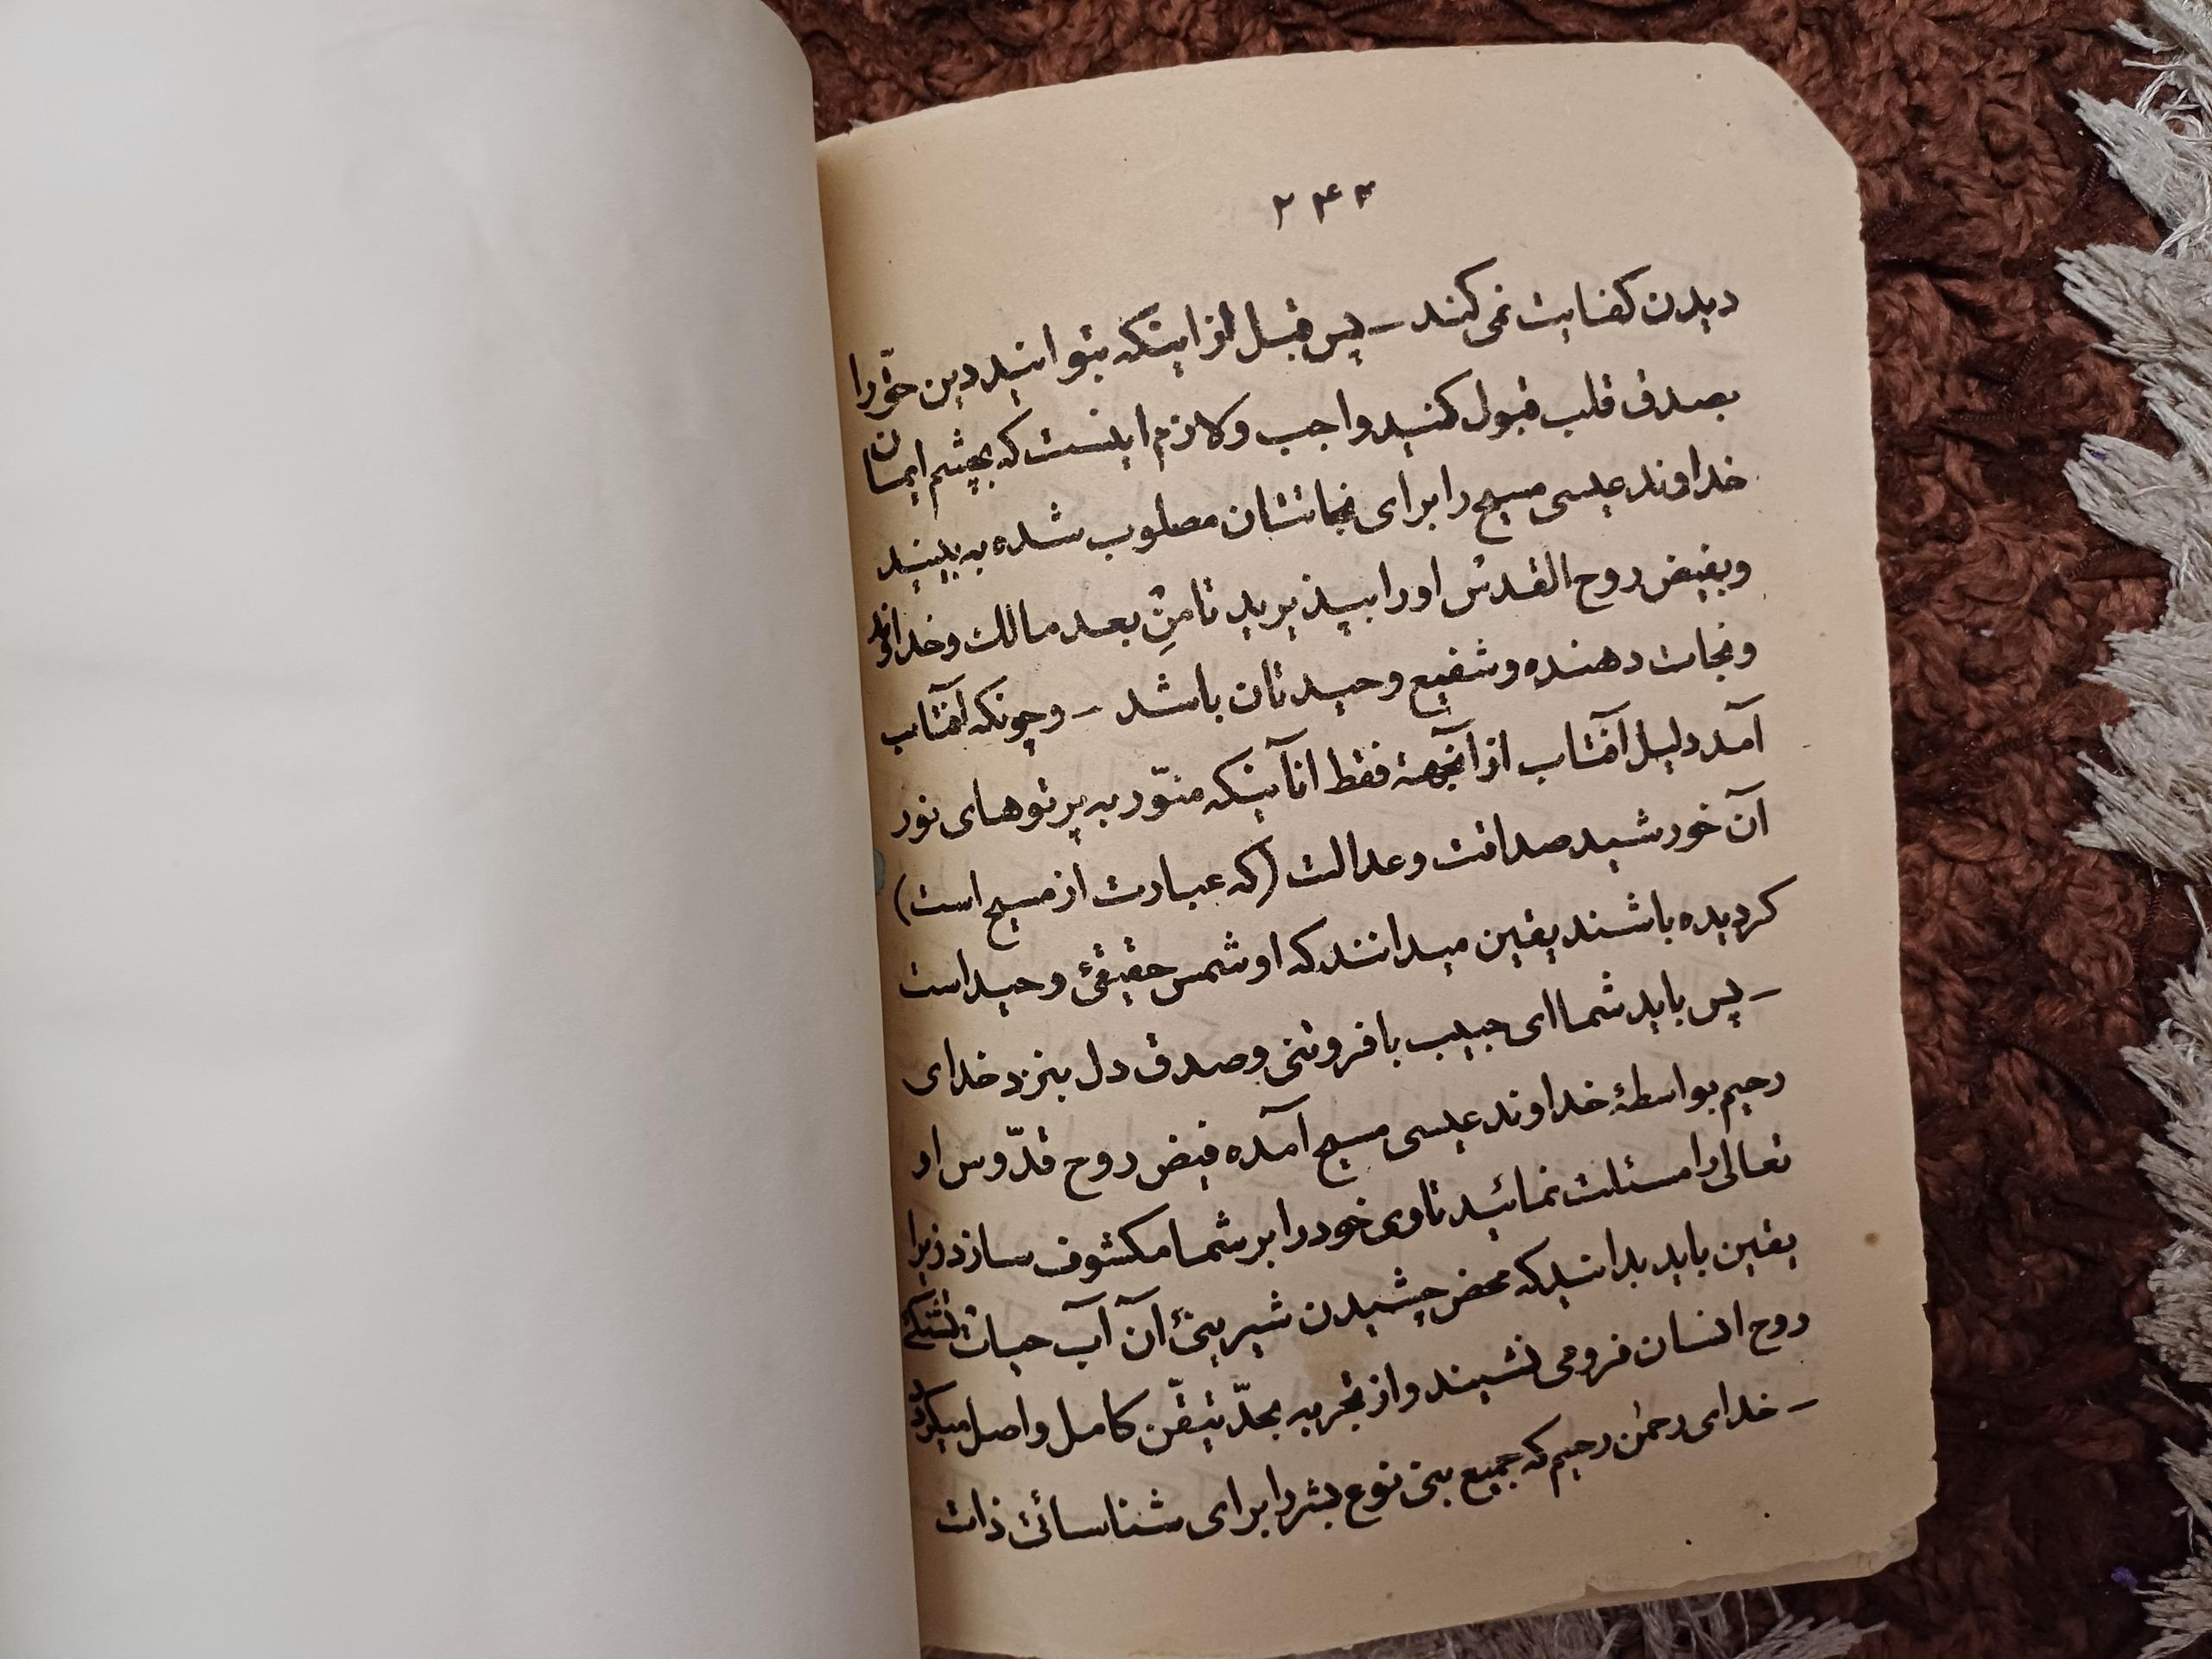 ۲۴۳
دیدن کفایت نمی‌کند ــ پس قبل از اینکه بتوانید دین حقّ را
بصدق قلب قبول کنید واجب و لازم اینست که بچشم ایمان
خداوند عیسی مسیح را برای نجاتتان مصلوب شده به بینید
و بفیض روح القدس او را بپذیرید تا مِن بعد مالک و خداوند
و نجات دهنده و شفیع وحید تان باشد ــ و چونکه آفتاب
آمد دلیل آفتاب از آنجهة فقط انآنیکه منوّر به پرتوهای نور
آن خورشید صداقت و عدالت (که عبارت از مسیح است)
کردیده باشند یقین میدانند که او شمس حقیقئ وحید است
ــ پس باید شما ای حبیب با فروتنی و صدق دل بنزد خدای
رحیم بواسطهٔ خداوند عیسی مسیح آمده فیض روح قدّوس او
تعالی را مسئلت نمائید تا وی خود را بر شما مکشوف سازد زیرا
یقین باید بدانید که محض چشیدن شیرینئ آن آب حیات تشنکئ
روح انسان فرو می نشیند و از تجربه بحدّ تیقّن کامل واصل میکردد
ــ خدای رحمٰن رحیم که جمیع بنی نوع بشر را برای شناسائئ ذات